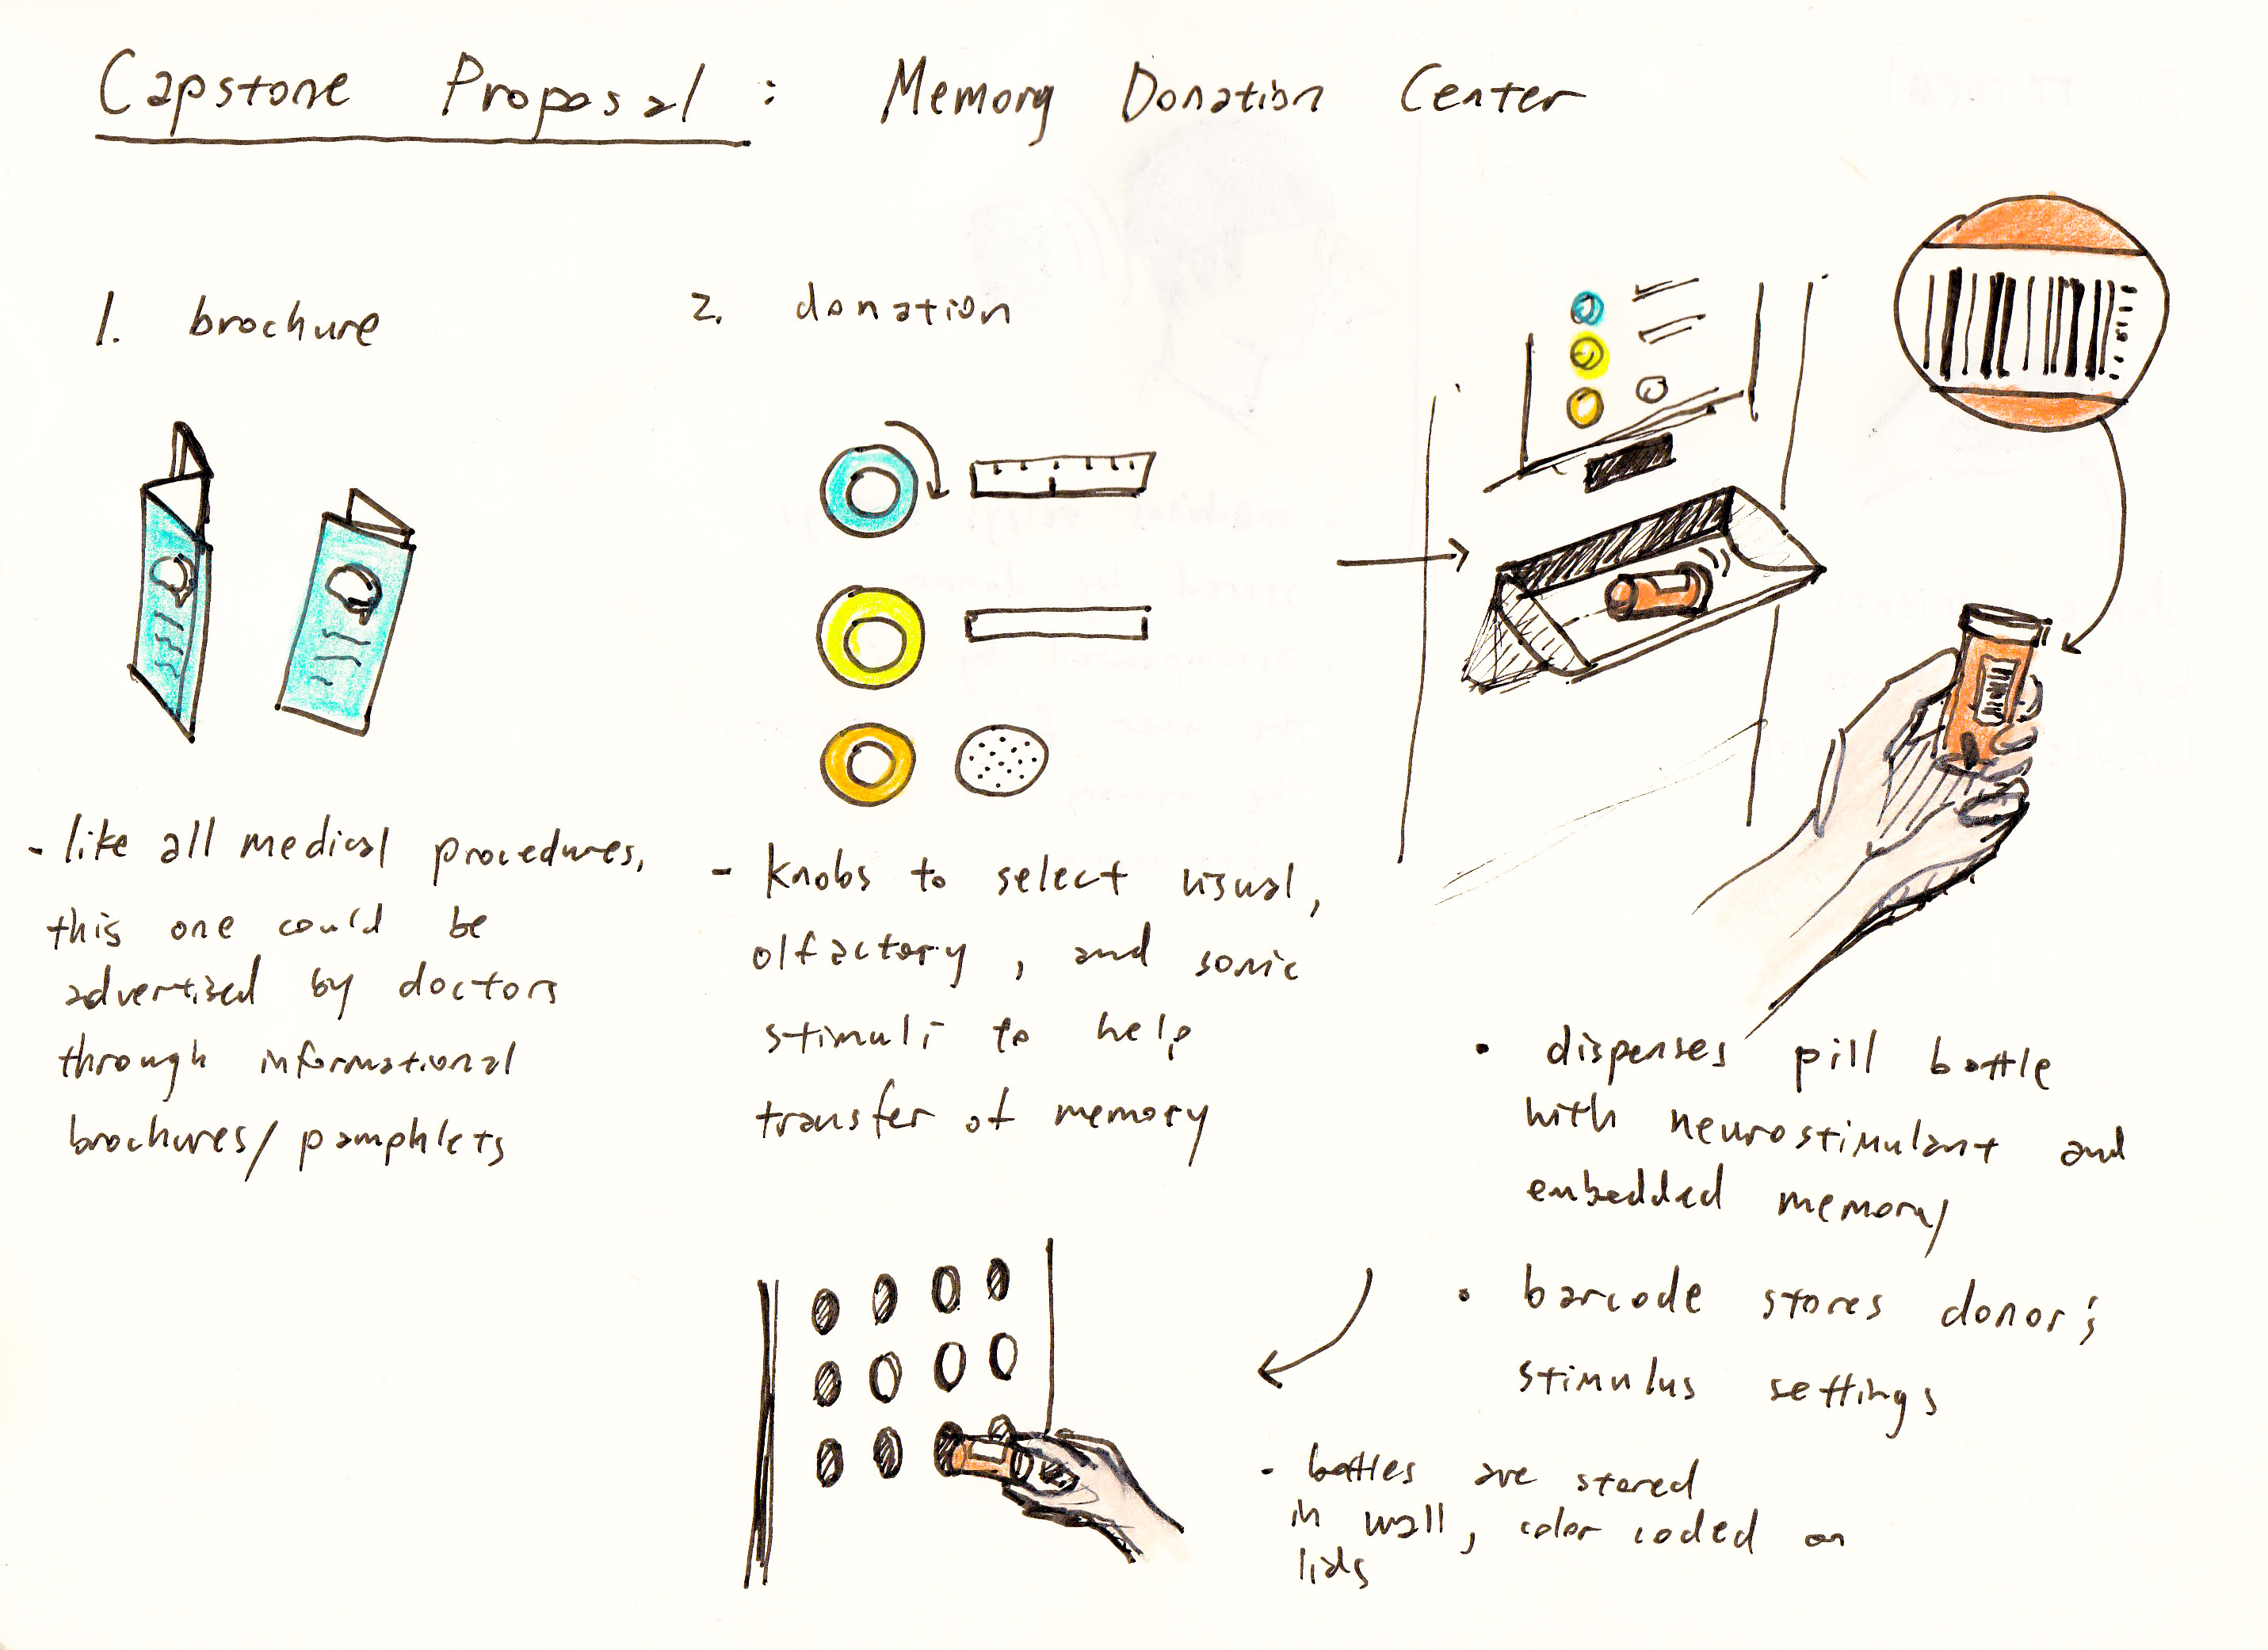 Capstone Proposal : Memory Donation Center
1. brochure
- like all medical procedures,
this one could be
advertised by doctors
through informational
brochures/pamphlets
2. donation
- knobs to select visual,
olfactory, and sonic
stimuli to help
transfer of memory
• dispenses pill bottle
with neurostimulant and
embedded memory
• barcode stores donor's
stimulus settings
- bottles are stored
in wall, color coded on
lids